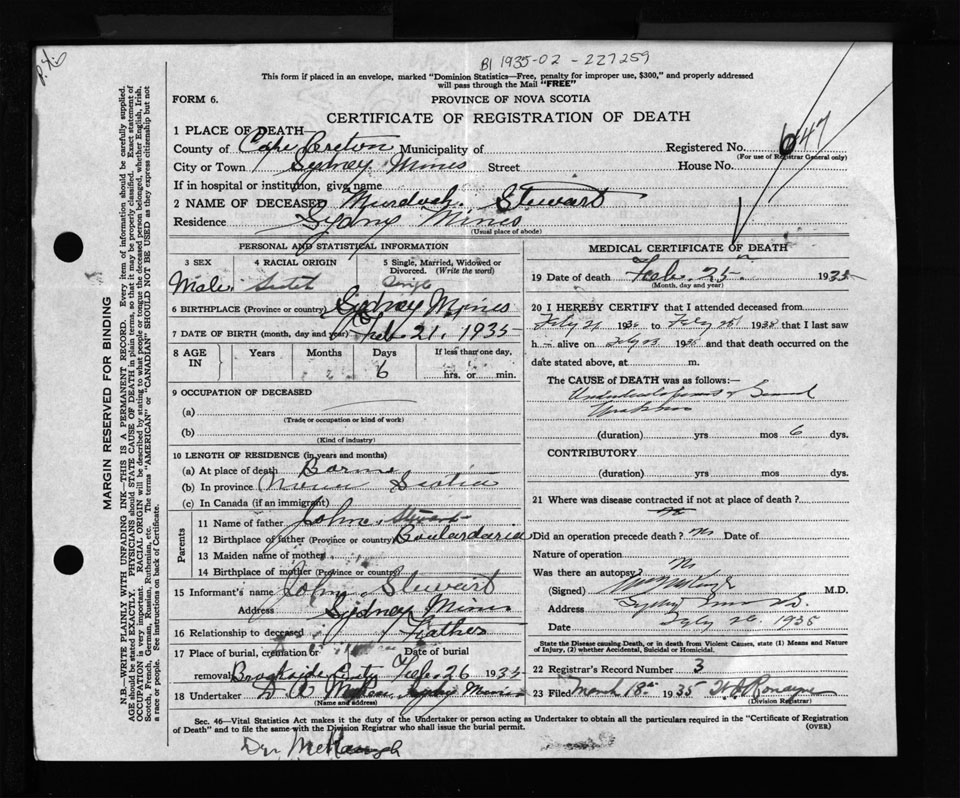 BI 1935-02 - 227259
This form if placed in an envelope, marked "Dominion Statistics—Free, penalty for improper use, $300," and properly addressed
will pass through the Mail "FREE"
FORM 6.
PROVINCE OF NOVA SCOTIA
CERTIFICATE OF REGISTRATION OF DEATH
1 PLACE OF DEATH
County of Cape Breton Municipality of
Registered No. 647
(For use of Registrar General only)
City or Town Sydney Mines Street House No.
If in hospital or institution, give name
2 NAME OF DECEASED Murdoch Stewart
Residence Sydney Mines
(Usual place of abode)
PERSONAL AND STATISTICAL INFORMATION
3 SEX 4 RACIAL ORIGIN 5 Single, Married, Widowed or Divorced. (Write the word)
Male Single
6 BIRTHPLACE (Province or country) Sydney Mines
7 DATE OF BIRTH (month, day and year) Feb 21, 1935
8 AGE IN Years Months Days If less than one day,
6 hrs. or min.
9 OCCUPATION OF DECEASED
(a)
(Trade or occupation or kind of work)
(b)
(Kind of industry)
10 LENGTH OF RESIDENCE (in years and months)
(a) At place of death
(b) In province Nova Scotia
(c) In Canada (if an immigrant)
Parents
11 Name of father John Stewart
12 Birthplace of father (Province or country) Boulardarie
13 Maiden name of mother
14 Birthplace of mother (Province or country)
15 Informant's name John Stewart
Address Sydney Mines
16 Relationship to deceased Father
17 Place of burial, cremation or removal Date of burial
Brookside Feb. 26 1935
18 Undertaker Sydney Mines
(Name and address)
MEDICAL CERTIFICATE OF DEATH
19 Date of death Feb. 25 1935
(Month, day and year)
20 I HEREBY CERTIFY that I attended deceased from
193 to 1935 that I last saw
h alive on 1935 and that death occurred on the
date stated above, at m.
The CAUSE of DEATH was as follows:—
(duration) yrs mos 6 dys.
CONTRIBUTORY
(duration) yrs mos dys.
21 Where was disease contracted if not at place of death?
Did an operation precede death? No Date of
Nature of operation
Was there an autopsy? No
(Signed) M.D.
Address Sydney Mines
Date 26 1935
State the Disease causing Death, or in death from Violent Causes, state (1) Means and Nature
of Injury, (2) whether Accidental, Suicidal or Homicidal.
22 Registrar's Record Number 3
23 Filed March 18 1935
(Division Registrar)
Sec. 46—Vital Statistics Act makes it the duty of the Undertaker or person acting as Undertaker to obtain all the particulars required in the "Certificate of Registration
of Death" and to file the same with the Division Registrar who shall issue the burial permit.
(OVER)
MARGIN RESERVED FOR BINDING
N.B.—WRITE PLAINLY WITH UNFADING INK—THIS IS A PERMANENT RECORD. Every item of information should be carefully supplied.
AGE should be stated EXACTLY. PHYSICIANS should STATE CAUSE OF DEATH in plain terms, so that it may be properly classified. Exact statement of
OCCUPATION is very important. RACIAL ORIGIN will be described by stating to what people or tongue the deceased person belonged, whether English, Irish,
Scotch, French, German, Russian, Ruthenian, etc. The terms "AMERICAN" or "CANADIAN" SHOULD NOT BE USED as they express citizenship but not
a race or people. See instructions on back of Certificate.